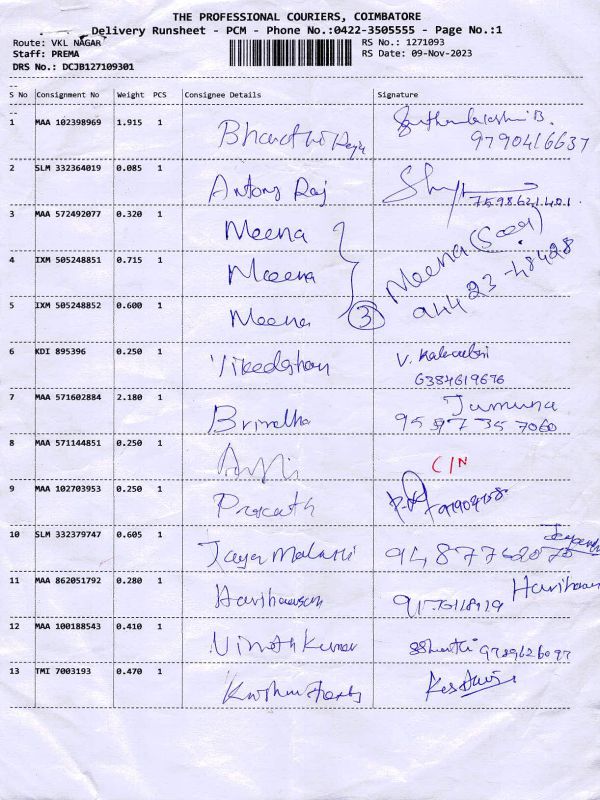 THE PROFESSIONAL COURIERS, COIMBATORE
Delivery Runsheet - PCM - Phone No.:0422-3505555 - Page No.:1
Route: VKL NAGAR RS No.: 1271093
Staff: PREMA RS Date: 09-Nov-2023
DRS No.: DCJB127109301
S No Consignment No Weight PCS Consignee Details Signature
1 MAA 102398969 1.915 1 Bharathi B.
9790416637
2 SLM 332364019 0.085 1 Antony Raj
7598621401
3 MAA 572492077 0.320 1 Meena Meena
4 IXM 505248851 0.715 1 Meena 94423-48428
5 IXM 505248852 0.600 1 Meena 3
6 KDI 895396 0.250 1 V.
6384619676
7 MAA 571602884 2.180 1 Brindha Jamuna
9597357060
8 MAA 571144851 0.250 1 C/N
9 MAA 102703953 0.250 1 Prasath
10 SLM 332379747 0.605 1 Jaya Malani 9487762070
11 MAA 862051792 0.280 1 Hariharan Hariharan
12 MAA 100188543 0.410 1 Vinoth Kumar
13 TMI 7003193 0.470 1